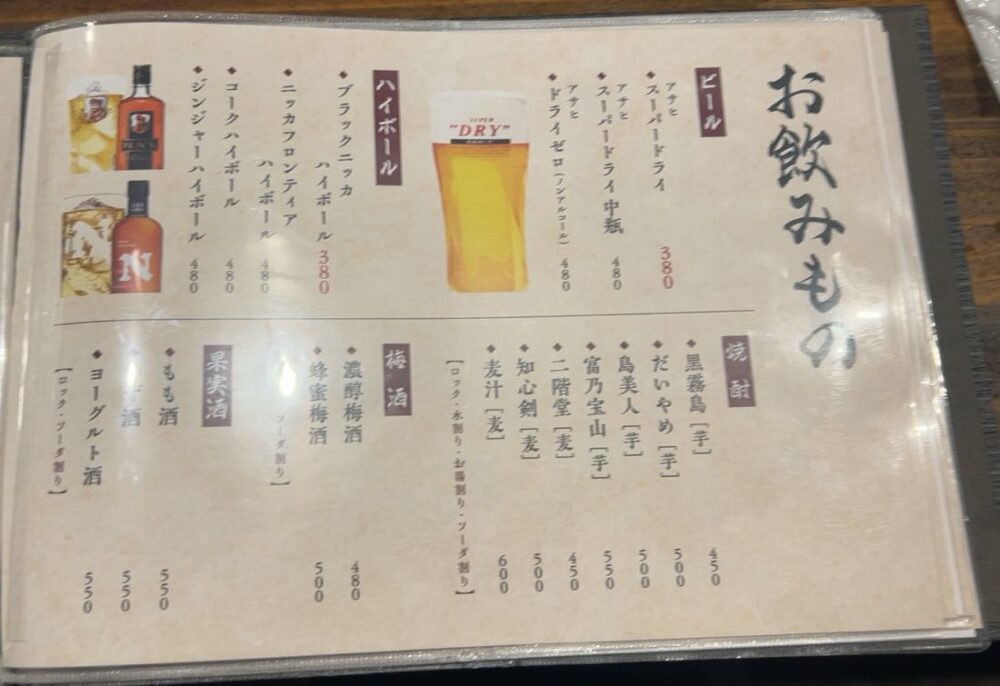 お飲みもの
ビール
◆アサヒ
スーパードライ 380
◆アサヒ
スーパードライ中瓶 480
◆アサヒ
ドライゼロ(ノンアルコール) 480
SUPER
"DRY"
ハイボール
◆ブラックニッカ
ハイボール 380
◆ニッカフロンティア
ハイボール 480
◆コークハイボール 480
◆ジンジャーハイボール 480
BLACK
N
焼酎
◆黒霧島[芋] 450
◆だいやめ[芋] 500
◆島美人[芋] 500
◆富乃宝山[芋] 550
◆二階堂[麦] 450
◆知心剣[麦] 500
◆麦汁[麦] 600
【ロック・水割り・お湯割り・ソーダ割り】
梅酒
◆濃醇梅酒 480
◆蜂蜜梅酒 500
ソーダ割り】
果実酒
◆もも酒 550
酒 550
◆ヨーグルト酒 550
【ロック・ソーダ割り】